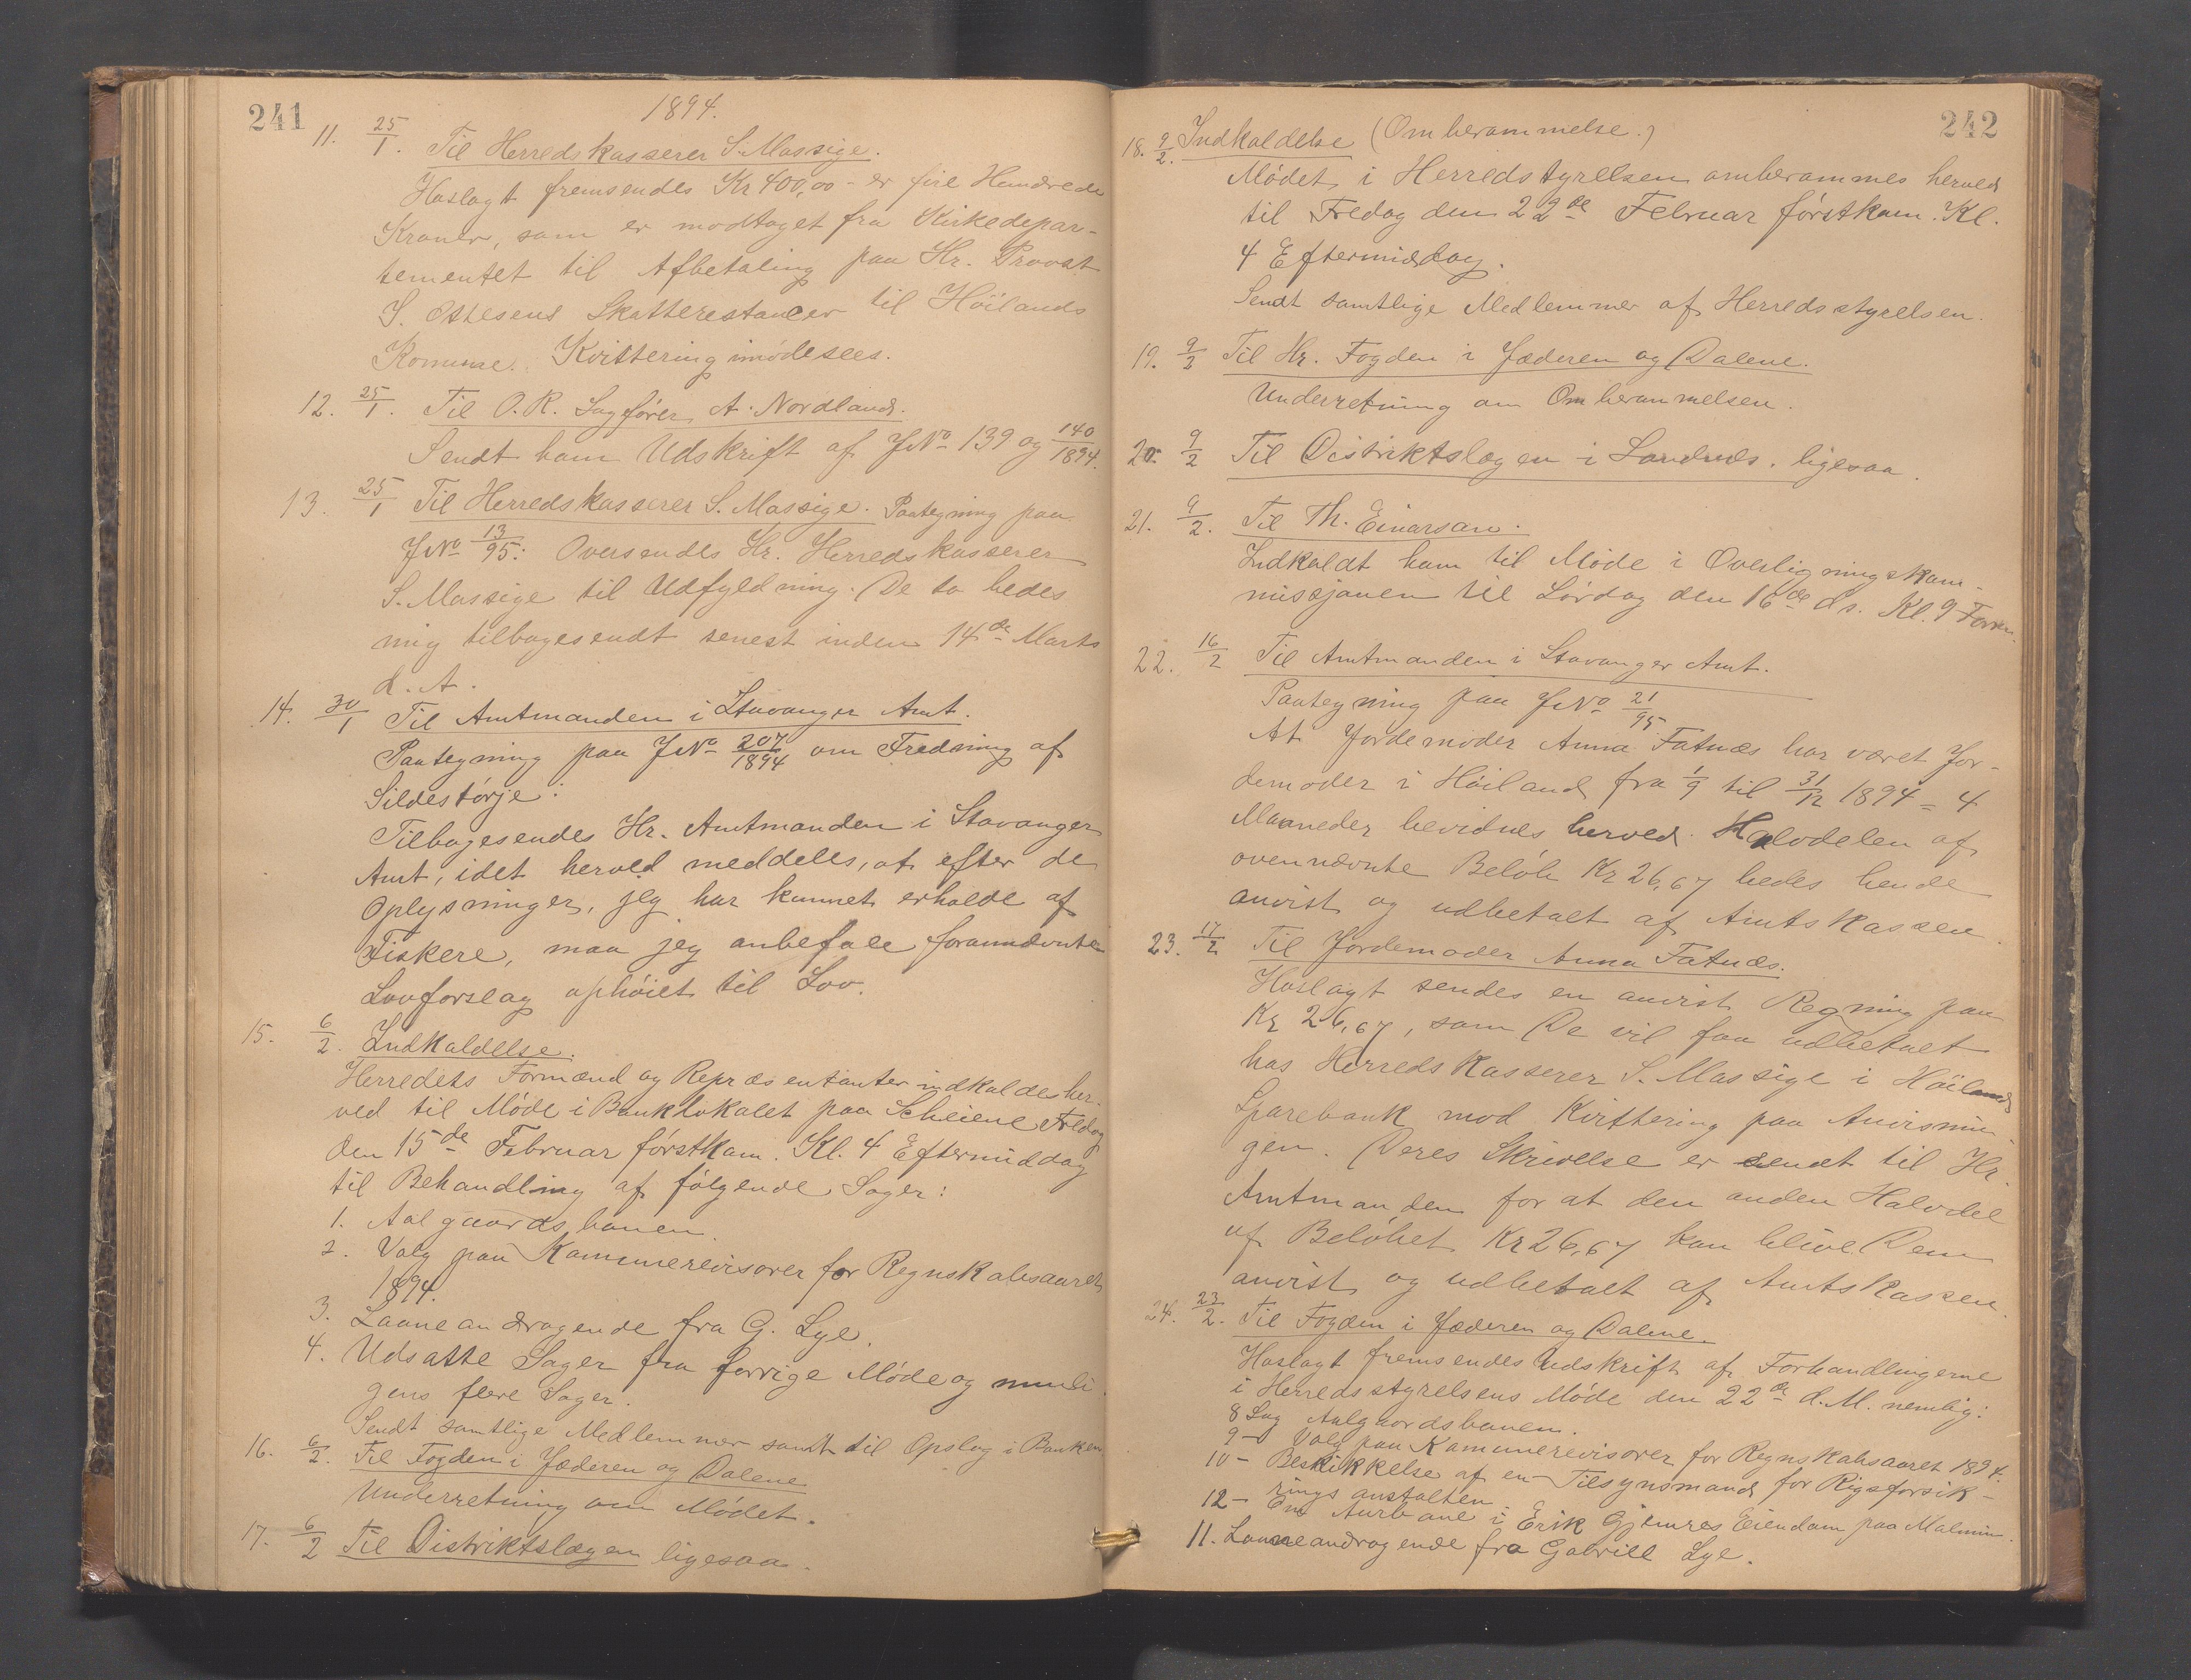 241
1894.
11. 25/1. Til Herredskasserer S. Massige.
Hoslagt fremsendes Kr 400,00 - er fire Hundrede
Kroner, som er modtaget fra Kirkedepar-
tementet til Afbetaling paa Hr. Provst
S. Ottesens Skatterestancer til Höilands
Komune. Kvittering imödesees.
12. 25/1. Til O.R. Sagförer A. Nordland.
Sendt ham Udskrift af J№ 139 og 140/1894.
13. 25/1 Til Herredskasserer S. Massige. Paategning paa
J№ 13/95: Oversendes Hr. Herredskasserer
S. Massige til Udfyldning. De to bedes
mig tilbagesendt senest inden 14de Marts
d. A.
14. 30/1 Til Amtmanden i Stavanger Amt.
Paategning paa J№ 207/1894 om Fredning af
Sildestörje:
Tilbagesendes Hr. Amtmanden i Stavanger
Amt, idet herved meddeles, at efter de
Oplysninger, jeg har kunnet erholde af
Fiskere, maa jeg anbefale forannævnte
Lovforslag ophöiet til Lov.
15. 6/2. Indkaldelse.
Herredets Formænd og Repræsentanter indkaldes her-
ved til Möde i Banklokalet paa Scheiene Fredag
den 15de Februar förstkom. Kl. 4 Eftermiddag
til Behandling af fölgende Sager:
1. Aalgaardsbanen.
2. Valg paa Kommunerevisorer for Regnskabsaaret
1894.
3. Laaneandragende fra G. Lye.
4. Udsatte Sager fra forrige Möde og muli-
gens flere Sager.
Sendt samtlige Medlemmer samt til Opslag i Banken
16. 6/2. Til Fogden i Jæderen og Dalene
Underretning om Mödet.
17. 6/2 Til Distriktslægen ligesaa.
242
18. 9/2. Indkaldelse (Omberammelse.)
Mödet i Herredstyrelsen omberammes herved
til Fredag den 22de Februar förstkom. Kl.
4 Eftermiddag.
Sendt samtlige Medlemmer af Herredsstyrelsen.
19. 9/2 Til Hr. Fogden i Jæderen og Dalene.
Underretning om Omberammelsen.
20. 9/2 Til Distriktslægen i Sandnes. ligesaa.
21. 9/2. Til Th. Einarsen.
Indkaldt ham til Möde i Overligningskom-
missjonen til Lördag den 16de ds. Kl. 9 Form.
22. 16/2 Til Amtmanden i Stavanger Amt.
Paategning paa J№ 21/95
At Jordemoder Anna Fatnæs har været Jor-
demoder i Höiland fra 1/9 til 31/12 1894 = 4
Maaneder bevidnes herved. Halvdelen af
ovennævnte Belöb Kr 26,67 bedes hende
anvist og udbetalt af Amtskassen.
23. 17/2 Til Jordemoder Anna Fatnæs.
Hoslagt sendes en anvist Regning paa
Kr 26,67, som De vil faa udbetalt
hos Herredskasserer S. Massige i Höilands
Sparebank mod Kvittering paa Anvisnin-
gen. Deres Skrivelse er sendt til Hr.
Amtmanden for at den anden Halvdel
af Belöbet Kr 26,67 kan blive Dem
anvist og udbetalt af Amtskassen.
24. 23/2. Til Fogden i Jæderen og Dalene.
Hoslagt fremsendes Udskrift af Forhandlingerne
i Herredsstyrelsens Möde den 22de d. M. nemlig:
8 Sag Aalgaardsbanen.
9 - Valg paa Kommunerevisorer for Regnskabsaaret 1894.
10 - Beskikkelse af en Tilsynsmand for Rigsforsik-
rings anstalten
12 - Om Aurbane i Erik Gjemres Eiendom paa Malmin.
11. Laaneandragende fra Gabriel Lye.